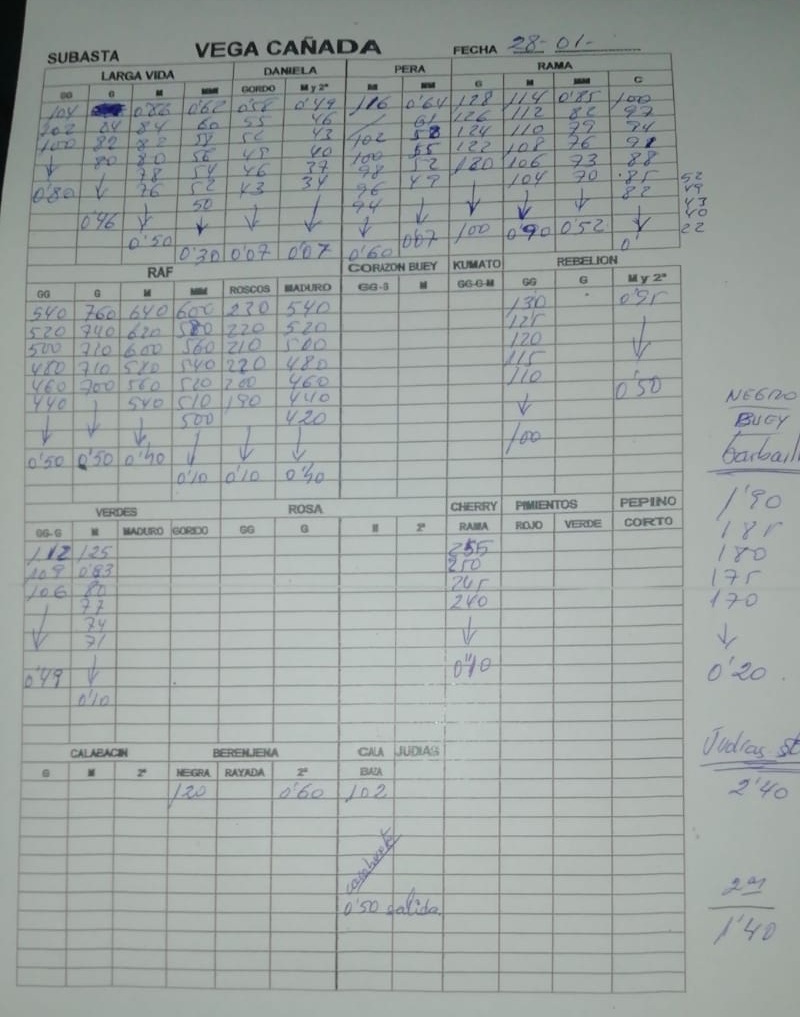 SUBASTA VEGA CAÑADA FECHA 28-01-
LARGA VIDA DANIELA PERA RAMA
GG G M MM GORDO M y 2ª M MM G M MM C
104 0'86 0'62 0'58 0'49 116 0'64 128 114 0'85 100
102 84 84 60 55 46 61 126 112 82 97
100 82 82 58 52 43 102 58 124 110 79 94
80 80 56 49 40 100 55 122 108 76 91
78 54 46 37 98 52 120 106 73 88
0'80 76 52 43 34 96 49 104 70 85 52
50 94 82 49
43
0'46 40
0'50 0'07 100 0'90 0'52 22
0'30 0'07 0'07 0'60 0'
RAF CORAZON BUEY KUMATO REBELION
GG G M MM ROSCOS MADURO GG-G M GG-G-M GG G M y 2ª
540 760 640 600 230 540 130 0'95
520 740 620 580 220 520 125
500 710 600 560 210 500 120
480 710 580 540 220 480 115
460 700 560 520 200 460 110
440 540 510 190 440 0'50
500 420
0'50 0'50 0'40 100
0'10 0'10 0'40
NEGRO
BUEY
VERDES ROSA CHERRY PIMIENTOS PEPINO
GG-G M MADURO GORDO GG G M 2ª RAMA ROJO VERDE CORTO
112 125 255
109 0'83 250
106 80 245
77 240
74
71
0'49 0'10
0'10
1'90
185
180
175
170
0'20
CALABACIN BERENJENA CALA JUDIAS
G M 2ª NEGRA RAYADA 2ª BAZA
120 0'60 102
0'50 salida
Judias
2'40
2ª
1'40